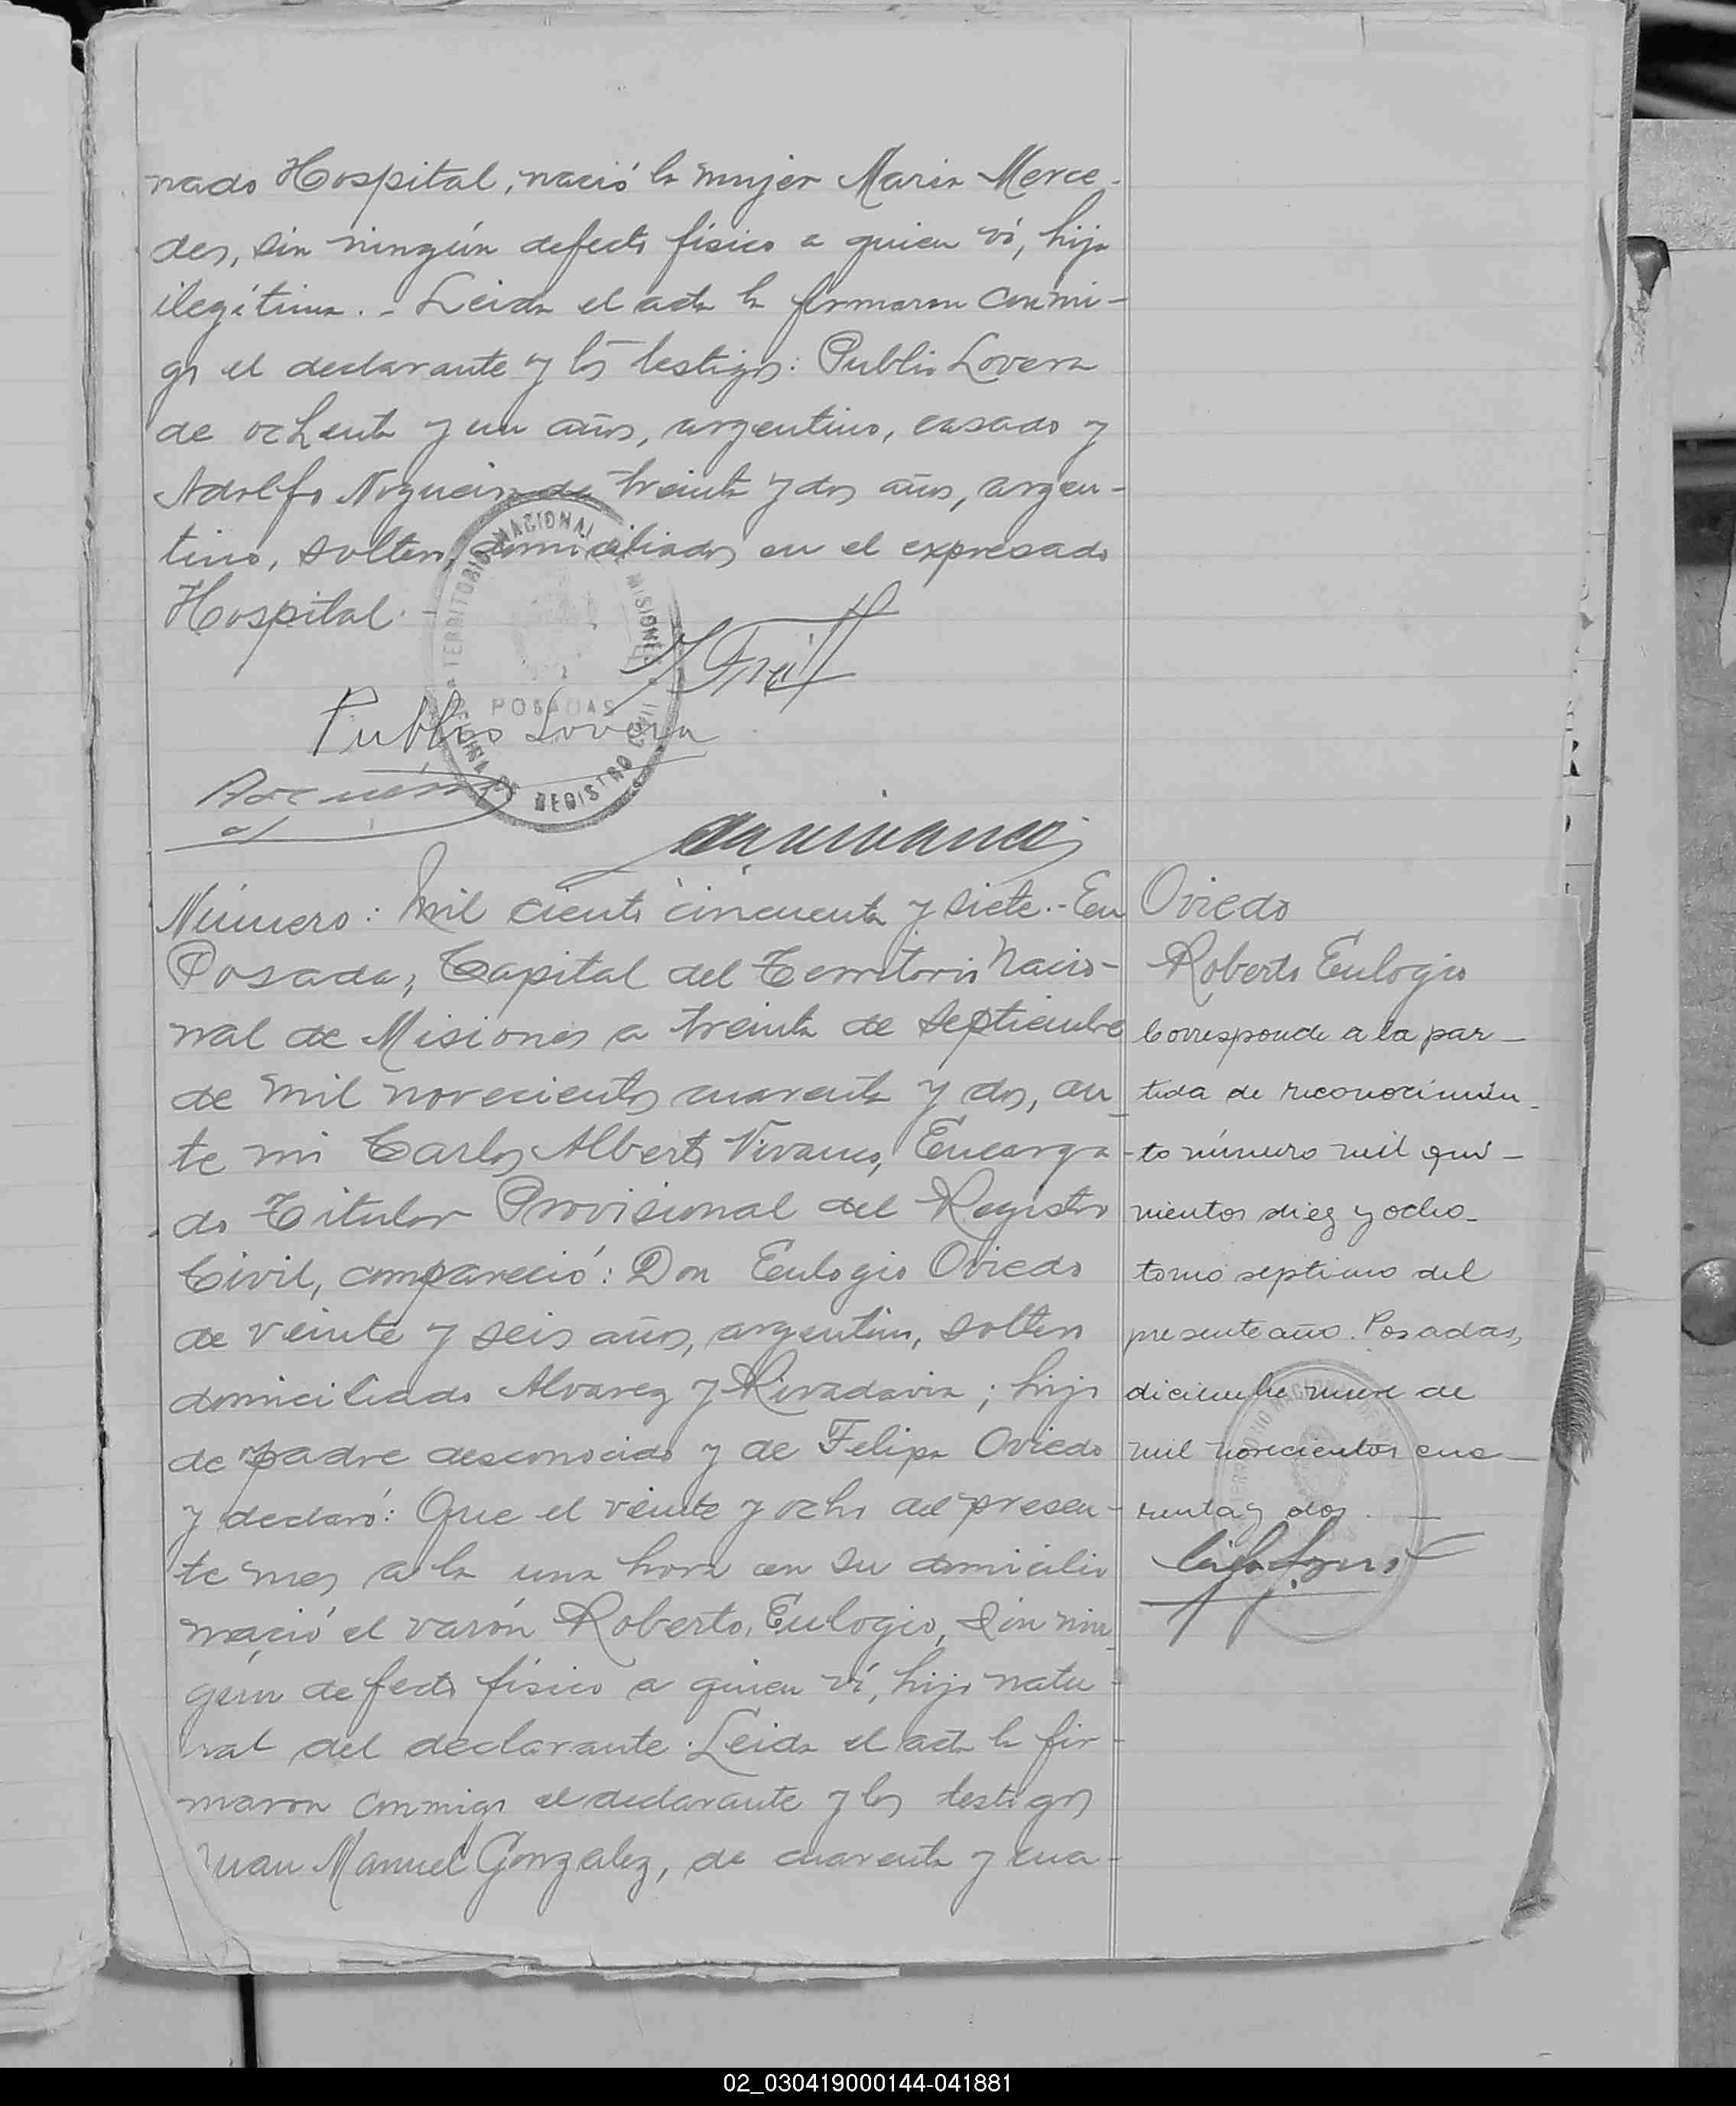 nado Hospital, nació la mujer Maria Merce-
des, sin ningún defecto físico a quien ví, hija
ilegítima.- Leida el acta la firmaron conmi-
go el declarante y los testigos: Publio Lovera
de ochenta y un años, argentino, casado y
Adolfo Nogueira de treinta y dos años, argen-
tino, soltero, domiciliados en el expresado
Hospital.-
TERRITORIO NACIONAL DE MISIONES
POSADAS
OFICINA DE REGISTRO CIVIL
Publio Lovera
Número: mil ciento cincuenta y siete.- En
Posadas, Capital del Territorio Nacio-
nal de Misiones a treinta de Septiembre
de mil novecientos cuarenta y dos, an-
te mi Carlos Alberto Vivanco, Encarga-
do Titular Provisional del Registro
Civil, compareció: Don Eulogio Oviedo
de veinte y seis años, argentino, soltero
domiciliado Alvarez y Rivadavia; hijo
de padre desconocido y de Felipa Oviedo
y declaró: Que el veinte y ocho del presen-
te mes a la una hora en su domicilio
nació el varón Roberto Eulogio, sin nin-
gún defecto físico a quien ví, hijo natu-
ral del declarante. Leida el acta la fir-
maron conmigo el declarante y los testigos
Juan Manuel Gonzalez, de cuarenta y cua-
Oviedo
Roberto Eulogio
Corresponde a la par-
tida de reconocimien-
to número mil qui-
nientos diez y ocho-
tomo septimo del
presente año. Posadas,
diciembre nueve de
mil novecientos cua-
renta y dos.-
02_030419000144-041881